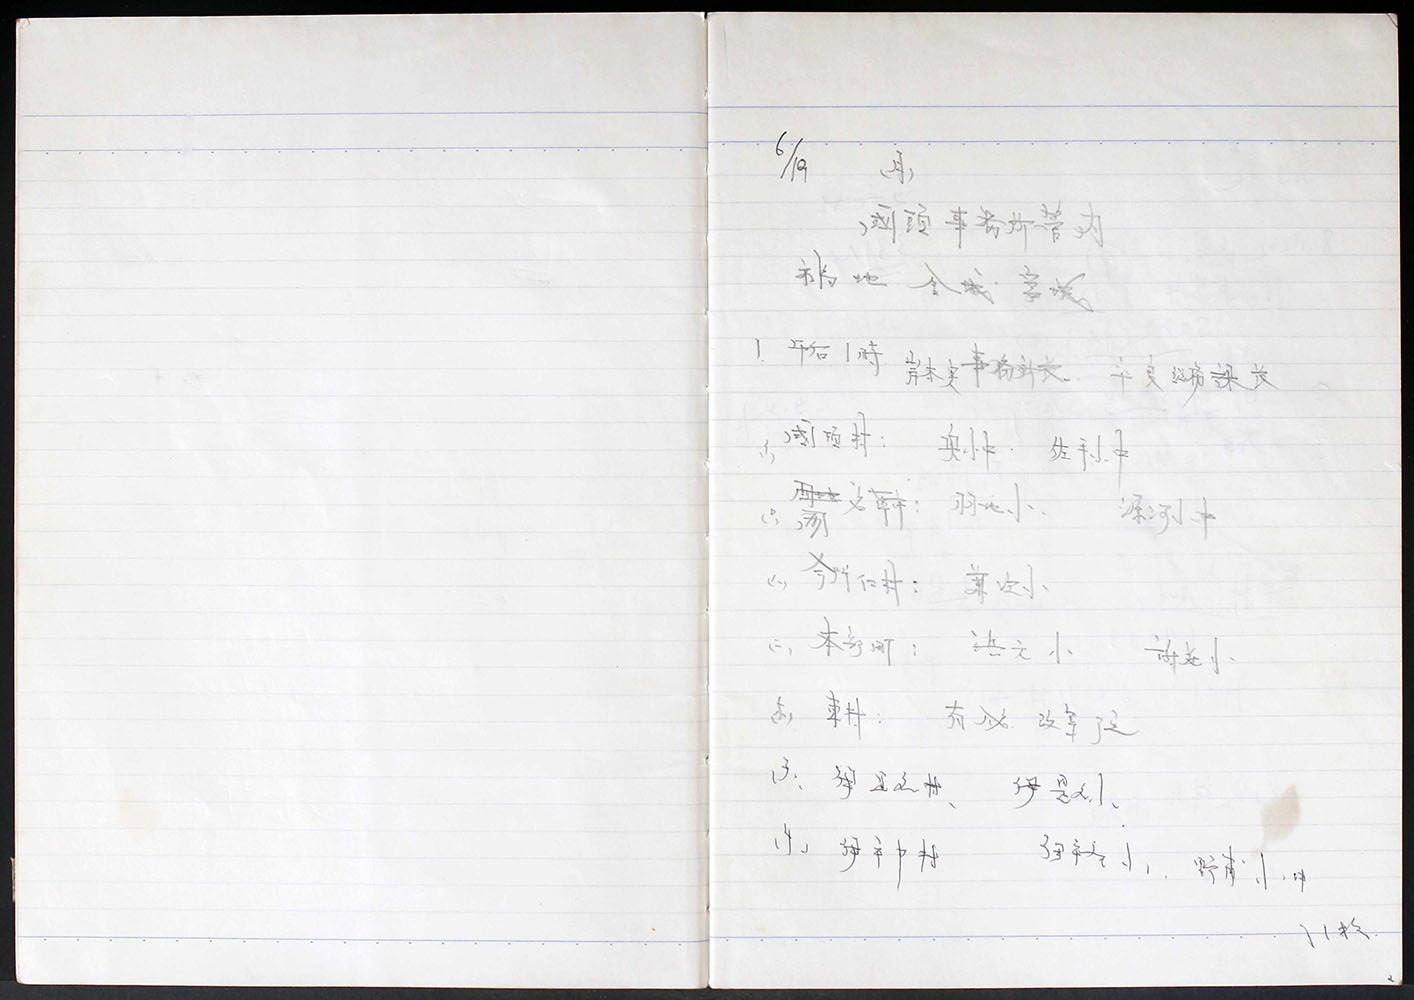 6/19 (月)
国頭事務所管内
福地 金城 宮城
1. 午后1時 岸本実事務所長 平良総務課長
(イ) 国頭村: 奥小中. 佐手小中
(ロ) 名護村: 羽地小. 源河小中
(ハ) 今帰仁村: 兼次小.
(ニ) 本部町: 浜元小 謝花小.
(ホ) 東村: 有銘
(3). 伊是名村、 伊是名小、
(4) 伊平屋村 伊平屋小, 野甫小. 中
11校.
2